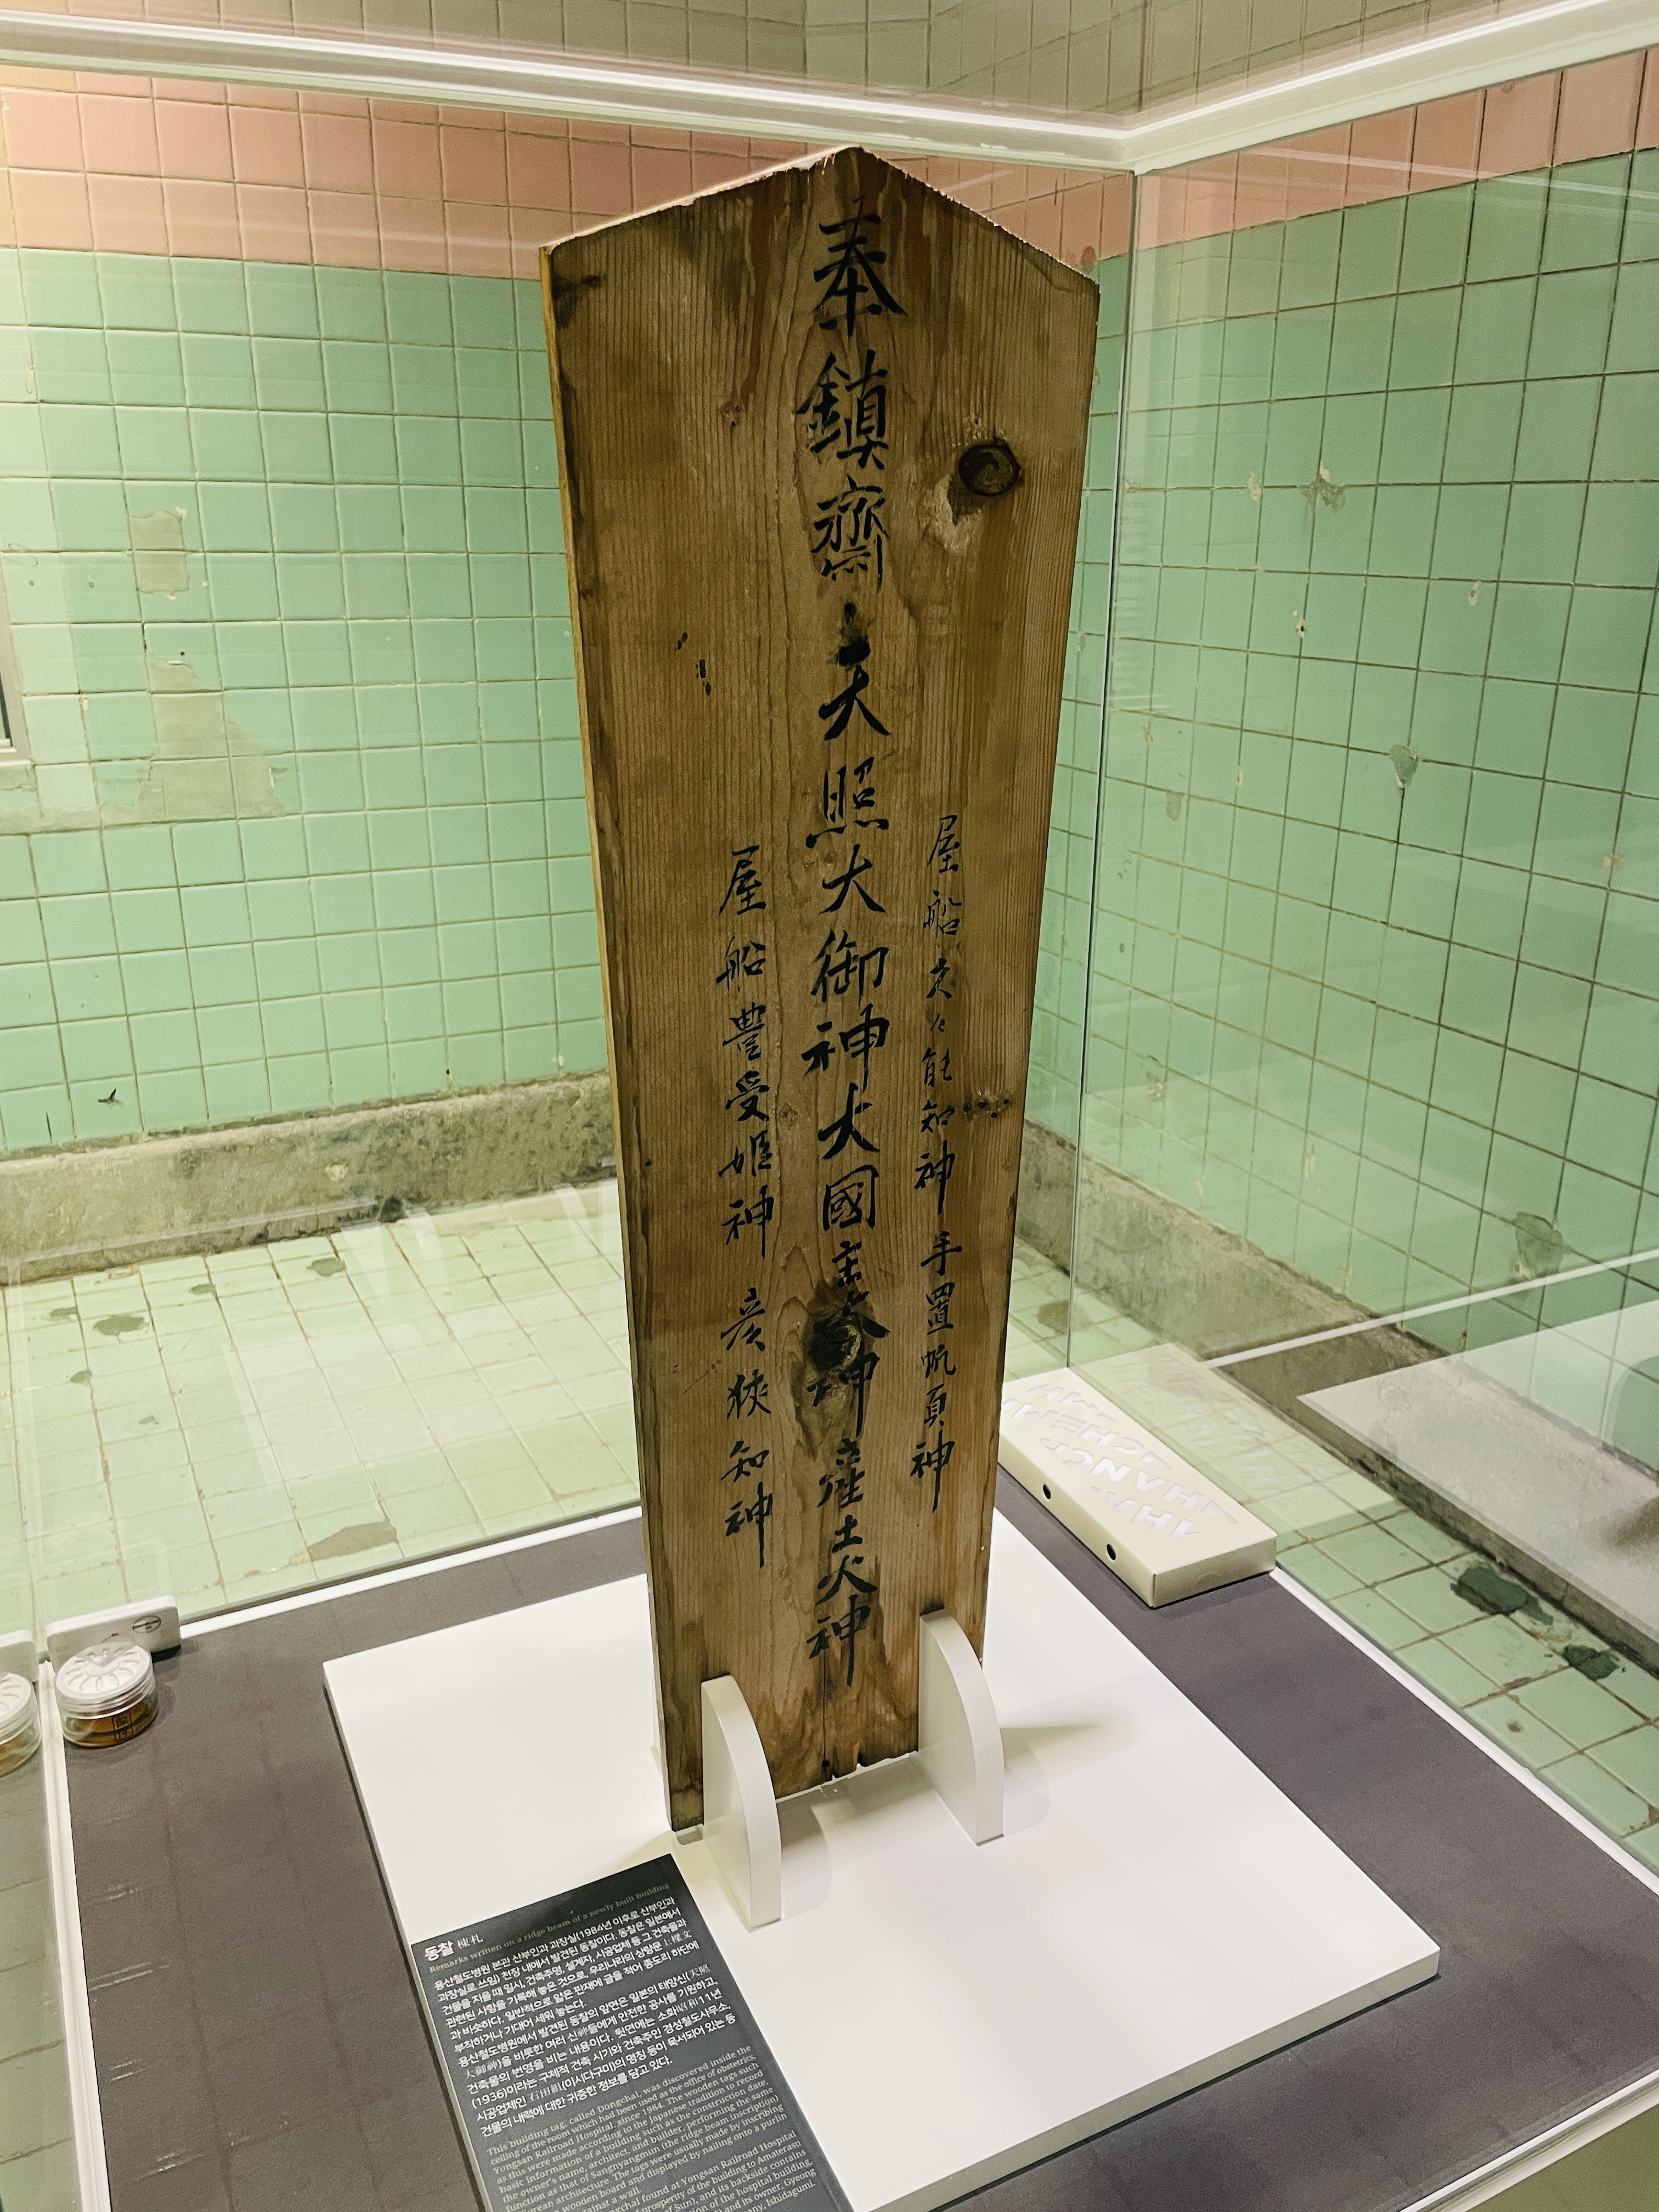 屋船久々能知神 手置帆負神
奉鎮齋 天照大御神大國主大神産土大神
屋船豊受姫神 彦狹知神
동찰 棟札
Remarks written on a ridge beam of a newly built building
용산철도병원 본관 산부인과 과장실(1984년 이후로 산부인과
과장실로 쓰임) 천장 내에서 발견된 동찰이다. 동찰은 일본에서
건물을 지을 때 일시, 건축주명, 설계자, 시공업체 등 그 건축물과
관련된 사항을 기록해 놓은 것으로, 우리나라의 상량문上樑文
과 비슷하다. 일반적으로 얇은 판재에 글을 적어 종도리 하단에
부착하거나 기대어 세워 놓는다.
용산철도병원에서 발견된 동찰의 앞면은 일본의 태양신(天照
大御神)을 비롯한 여러 신神들에게 안전한 공사를 기원하고,
건축물의 번영을 비는 내용이다. 뒷면에는 소화昭和11년
(1936)이라는 구체적 건축 시기와 건축주인 경성철도사무소,
시공업체인 石田組(이시다구미)의 명칭 등이 묵서되어 있는 등
건물의 내력에 대한 귀중한 정보를 담고 있다.
This building tag, called Dongchal, was discovered inside the
ceiling of the room which had been used as the office of obstetrics,
Yongsan Railroad Hospital, since 1984. The wooden tags such
as this were made according to the Japanese tradition to record
basic information of a building such as the construction date,
the owner's name, architect, and builder, performing the same
function as that of Sangnyangmun (the ridge beam inscription)
orean architecture. The tags were usually made by inscribing
wooden board and displayed by nailing onto a purlin
against a wall.
ngchal found at Yongsan Railroad Hospital
prosperity of the building to Amaterasu
of Sun), and its backside contains
tion of the hospital building,
and its owner, Gyeong
any, Ishidagumi.